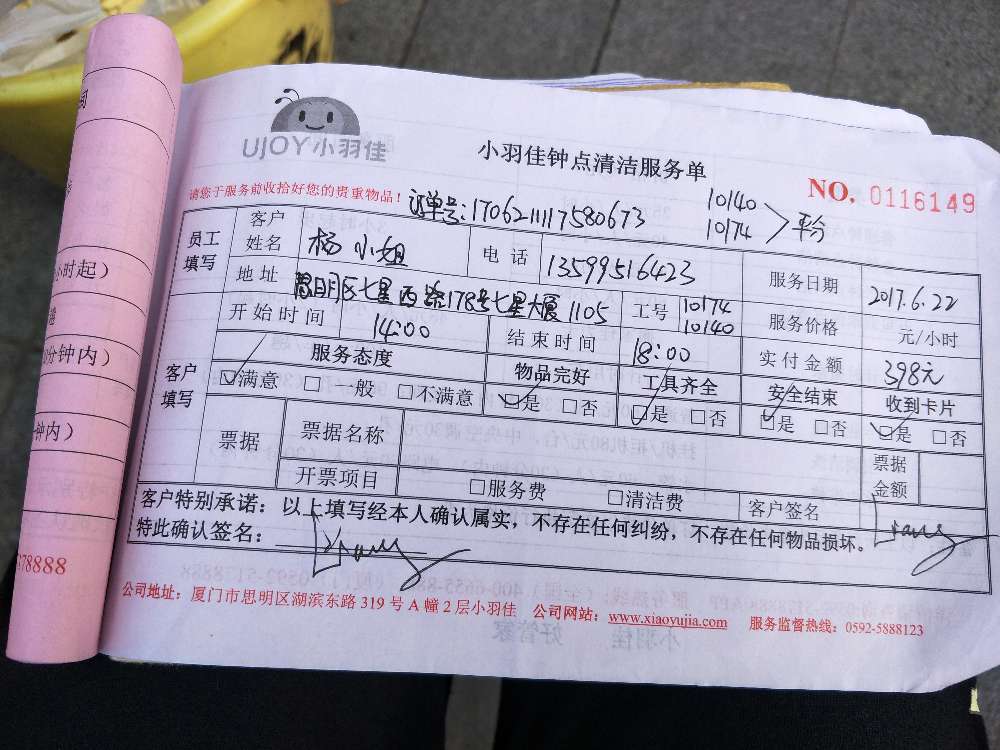 UJOY小羽佳
小羽佳钟点清洁服务单
请您于服务前收拾好您的贵重物品！
订单号:170621111758067​3
10140
10174
平分
NO. 0116149
员工填写
客户姓名
杨小姐
电话
13599516423
服务日期
2017.6.22
地址
思明区七星西路178号七星大厦1105
工号
10174
10140
服务价格
元/小时
开始时间
14:00
结束时间
18:00
实付金额
398元
客户填写
服务态度
物品完好
工具齐全
安全结束
收到卡片
☑满意 □一般 □不满意
☑是 □否
☑是 □否
☑是 □否
☑是 □否
票据
票据名称
票据金额
开票项目
□服务费 □清洁费
客户签名
客户特别承诺：以上填写经本人确认属实，不存在任何纠纷，不存在任何物品损坏。
特此确认签名：
公司地址：厦门市思明区湖滨东路319号A幢2层小羽佳 公司网站：www.xiaoyujia.com 服务监督热线：0592-5888123
小时起）
分钟内）
钟内）
78888